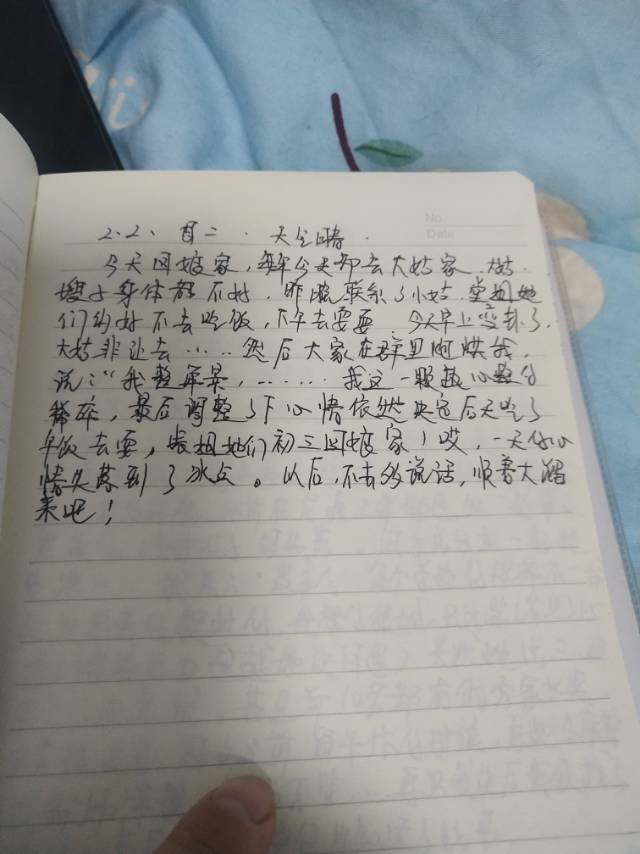 No.
Date
2.2、周二. 天气晴.
今天回娘家,每年今天都去大姑家.大姑
嫂子身体都不好,昨晚联系了小姑,堂姐她
们约好不去吃饭,下午去耍耍.今天早上变卦了,
大姑非让去……然后大家在群里
说:"我整
稀碎,最后调整了下心情依然决定后天吃了
午饭去耍,堂姐她们初三回娘家!哎,一天
情失落到了冰点。以后,不去多说话,顺着大溜
来吧!